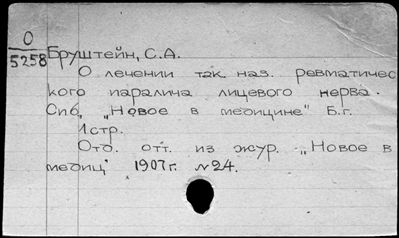 О
5258
Бруштейн, С.А.
О лечении так наз. ревматичес
кого паралича лицевого нерва.
Спб, „Новое в медицине" Б.г.
1 стр.
Отд. отт. из жур. „Новое в
медиц" 1907г. №24.